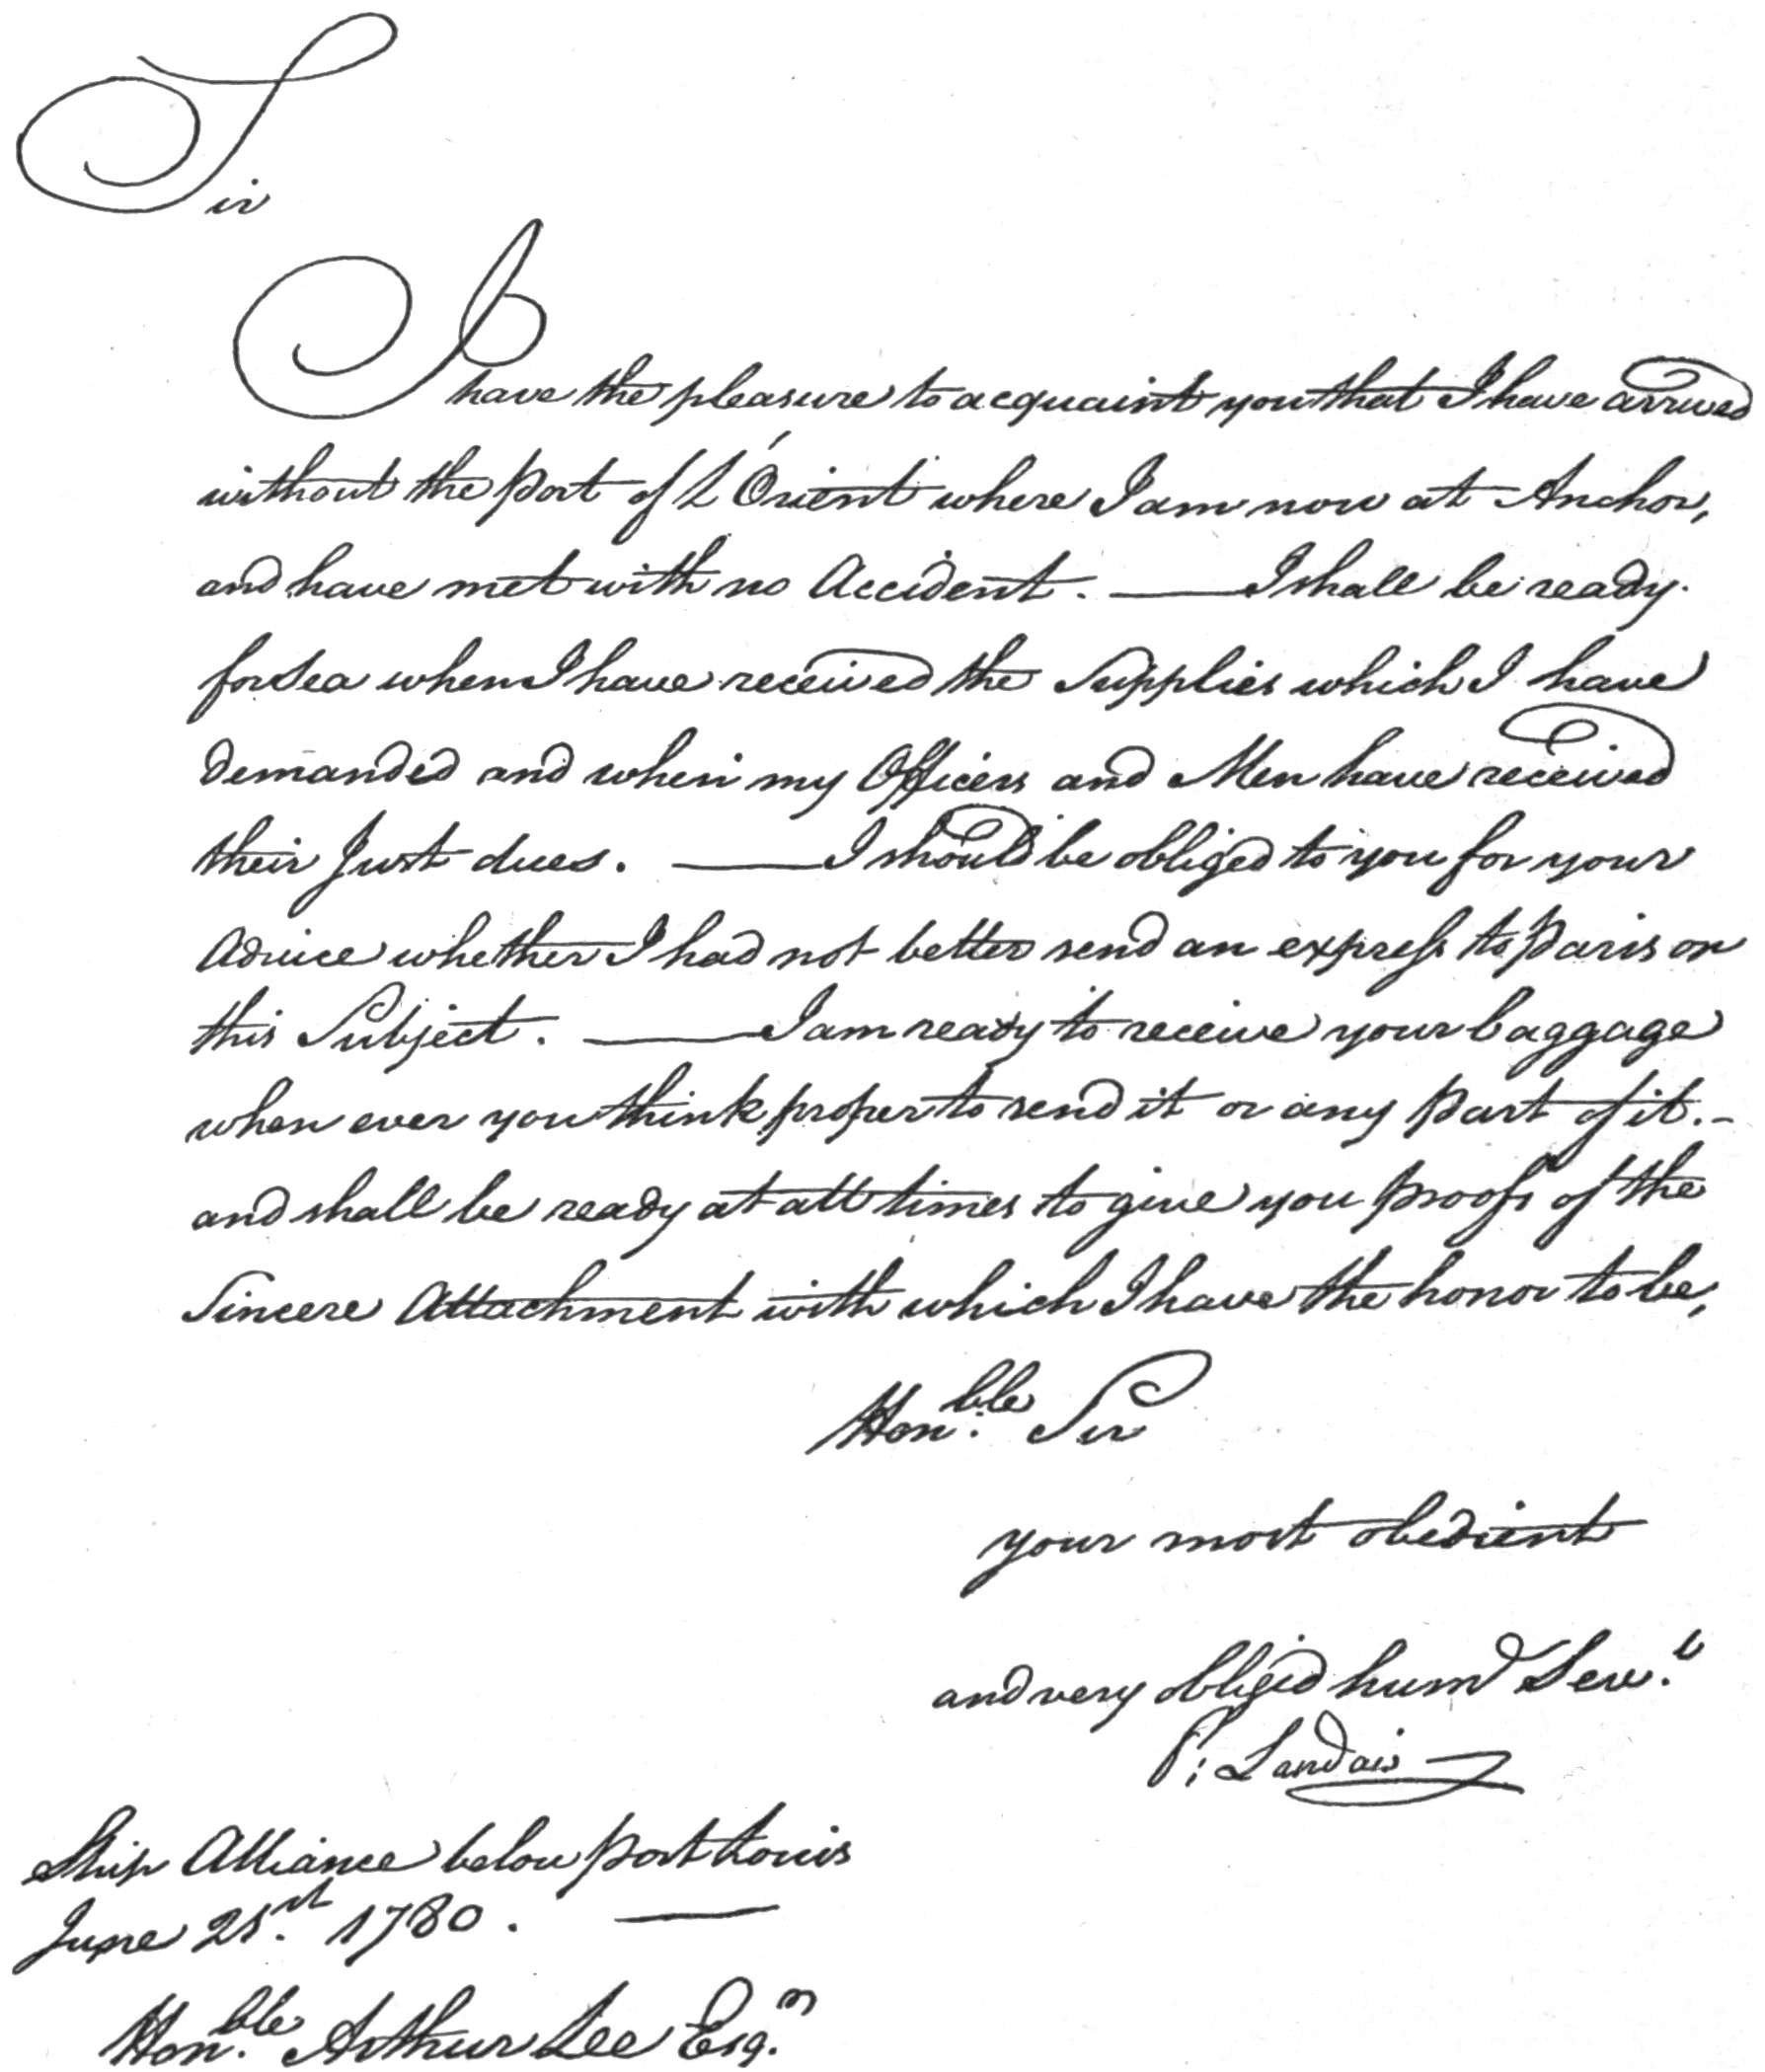 Sir
I have the pleasure to acquaint you that I have arrived
without the Port of L'Orient where I am now at Anchor,
and have met with no Accident. — I shall be ready
for Sea when I have received the Supplies which I have
demanded and when my Officers and Men have received
their Just dues. — I should be obliged to you for your
Advice whether I had not better send an express to Paris on
this Subject. — I am ready to receive your baggage
when ever you think proper to send it or any Part of it. –
and shall be ready at all times to give you proofs of the
Sincere Attachment with which I have the honor to be,
Hon.ble Sir
your most obedient
and very obliged hum Serv.t
P: Landais
Ship Alliance below Port Louis
June 21.st 1780. —
Hon.ble Arthur Lee Esq.r